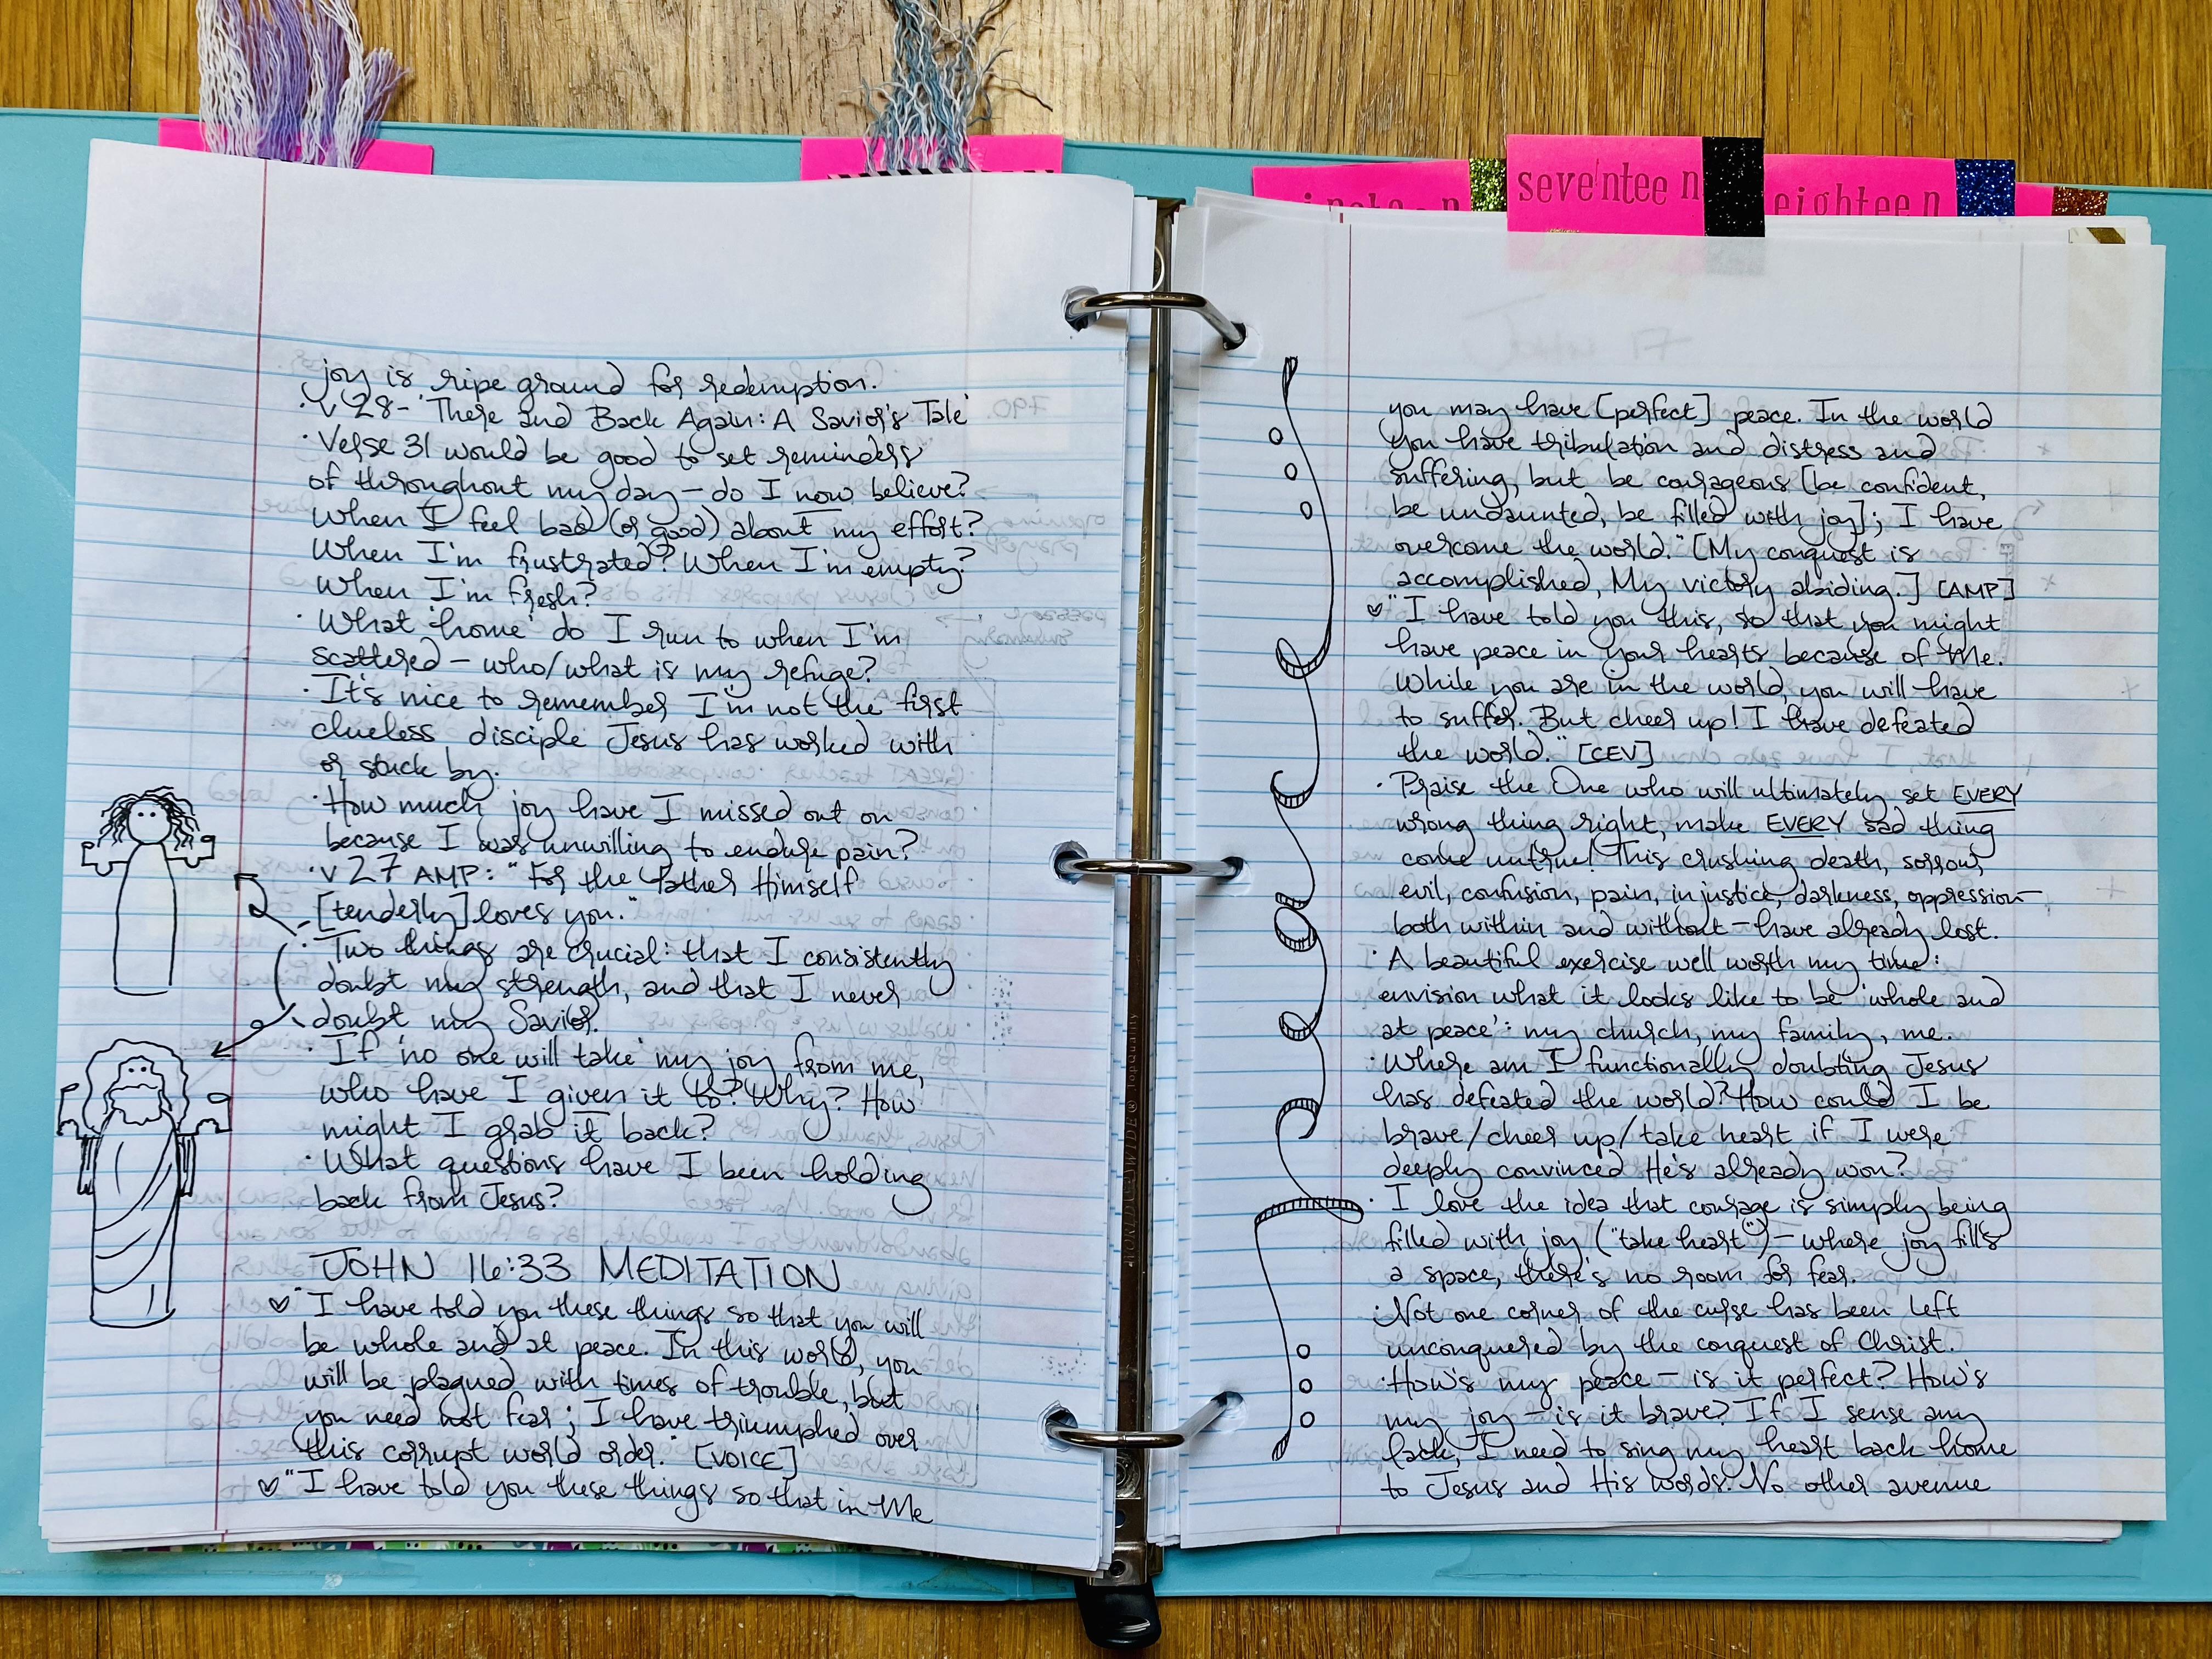 seventeen
eighteen
joy is ripe ground for redemption.
· v 28 - 'There and Back Again: A Savior's Tale'
· Verse 31 would be good to set reminders
of throughout my day — do I now believe?
When I feel bad (or good) about my effort?
When I'm frustrated? When I'm empty?
When I'm fresh?
· What 'home' do I run to when I'm
scattered — who/what is my refuge?
· It's nice to remember I'm not the first
clueless disciple Jesus has worked with
or stuck by.
· How much joy have I missed out on
because I was unwilling to endure pain?
· v 27 AMP: "For the Father Himself
[tenderly] loves you."
· Two things are crucial: that I consistently
doubt my strength, and that I never
doubt my Savior.
· If 'no one will take' my joy from me,
who have I given it to? Why? How
might I grab it back?
· What questions have I been holding
back from Jesus?
JOHN 16:33 MEDITATION
♡ "I have told you these things so that you will
be whole and at peace. In this world, you
will be plagued with times of trouble, but
you need not fear; I have triumphed over
this corrupt world order." [VOICE]
♡ "I have told you these things so that in Me
you may have [perfect] peace. In the world
you have tribulation and distress and
suffering, but be courageous [be confident,
be undaunted, be filled with joy]; I have
overcome the world." [My conquest is
accomplished, My victory abiding.] [AMP]
♡ "I have told you this, so that you might
have peace in your hearts because of Me.
While you are in the world, you will have
to suffer. But cheer up! I have defeated
the world." [CEV]
· Praise the One who will ultimately set EVERY
wrong thing right, make EVERY sad thing
come untrue! This crushing death, sorrow,
evil, confusion, pain, injustice, darkness, oppression—
both within and without — have already lost.
· A beautiful exercise well worth my time:
envision what it looks like to be 'whole and
at peace': my church, my family, me.
· Where am I functionally doubting Jesus
has defeated the world? How could I be
brave/cheer up/take heart if I were
deeply convinced He's already won?
· I love the idea that courage is simply being
filled with joy ("take heart") — where joy fills
a space, there's no room for fear.
· Not one corner of the curse has been left
unconquered by the conquest of Christ.
· How's my peace — is it perfect? How's
my joy — is it brave? If I sense any
lack, I need to sing my heart back home
to Jesus and His words. No other avenue